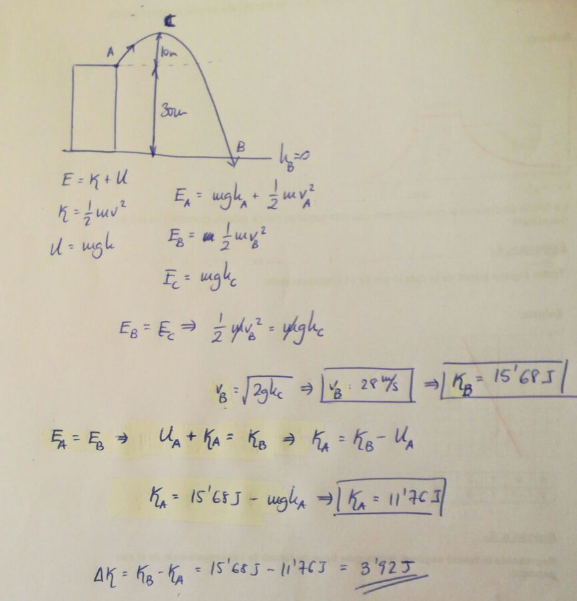 C
A
10m
30m
B
h_B=0
E = K + U
K = 1/2 mv²
U = mgh
E_A = mgh_A + 1/2 mv_A²
E_B = 1/2 mv_B²
E_C = mgh_C
E_B = E_C ⇒ 1/2 mv_B² = mgh_C
v_B = √2gh_C ⇒ v_B = 28 m/s ⇒ K_B = 15'68 J
E_A = E_B ⇒ U_A + K_A = K_B ⇒ K_A = K_B - U_A
K_A = 15'68 J - mgh_A ⇒ K_A = 11'76 J
ΔK = K_B - K_A = 15'68 J - 11'76 J = 3'92 J